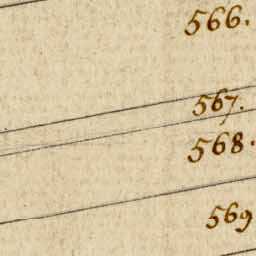 566.
567.
568.
569